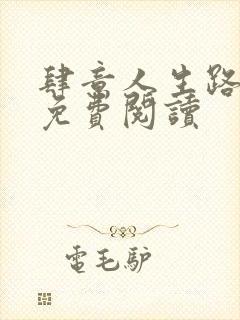 肆意人生路
免費閱讀
電毛驴